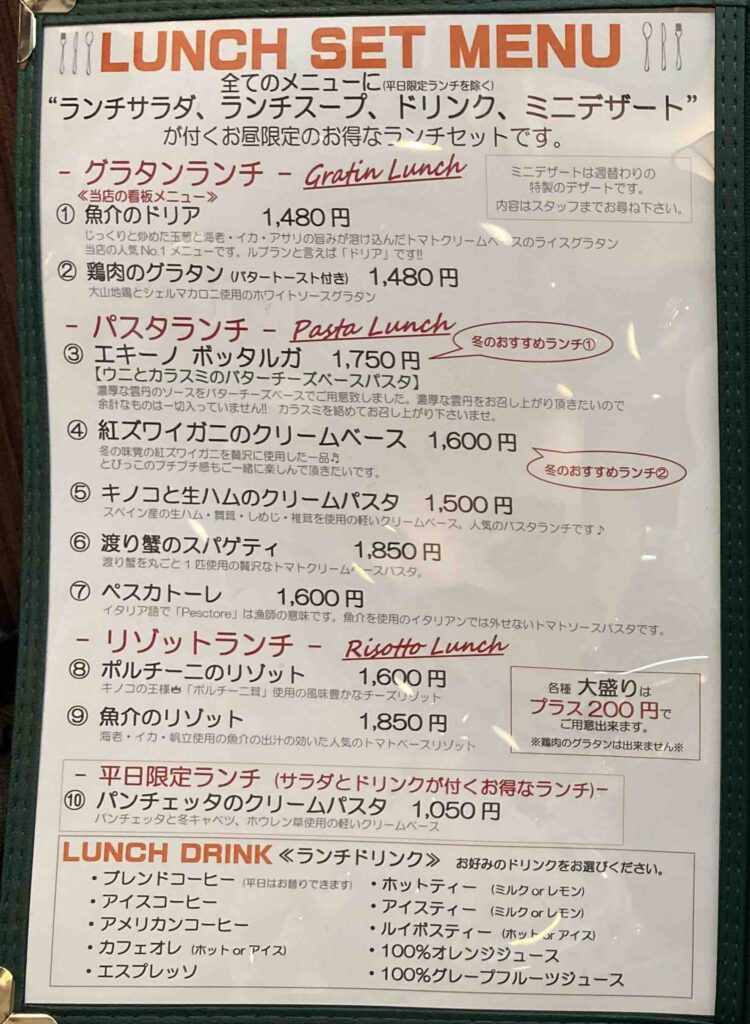 LUNCH SET MENU
全てのメニューに(平日限定ランチを除く)
“ランチサラダ、ランチスープ、ドリンク、ミニデザート”
が付くお昼限定のお得なランチセットです。
- グラタンランチ - Gratin Lunch
≪当店の看板メニュー≫
ミニデザートは週替わりの
特製のデザートです。
内容はスタッフまでお尋ね下さい。
① 魚介のドリア 1,480円
じっくりと炒めた玉葱と海老・イカ・アサリの旨みが溶け込んだトマトクリームベースのライスグラタン
当店の人気No.1メニューです。ルブランと言えば「ドリア」です!!
② 鶏肉のグラタン (バタートースト付き) 1,480円
大山地鶏とシェルマカロニ使用のホワイトソースグラタン
- パスタランチ - Pasta Lunch
冬のおすすめランチ①
③ エキーノ ボッタルガ 1,750円
【ウニとカラスミのバターチーズベースパスタ】
濃厚な雲丹のソースをバターチーズベースでご用意致しました。濃厚な雲丹をお召し上がり頂きたいので
余計なものは一切入っていません!! カラスミを絡めてお召し上がり下さいませ。
④ 紅ズワイガニのクリームベース 1,600円
冬の味覚の紅ズワイガニを贅沢に使用した一品♫
とびっこのプチプチ感もご一緒に楽しんで頂きたいです。
冬のおすすめランチ②
⑤ キノコと生ハムのクリームパスタ 1,500円
スペイン産の生ハム・舞茸・しめじ・椎茸を使用の軽いクリームベース。人気のパスタランチです♪
⑥ 渡り蟹のスパゲティ 1,850円
渡り蟹を丸ごと1匹使用の贅沢なトマトクリームベースパスタ。
⑦ ペスカトーレ 1,600円
イタリア語で「Pesctore」は漁師の意味です。魚介を使用のイタリアンでは外せないトマトソースパスタです。
- リゾットランチ - Risotto Lunch
⑧ ポルチーニのリゾット 1,600円
キノコの王様♚「ポルチーニ茸」使用の風味豊かなチーズリゾット
⑨ 魚介のリゾット 1,850円
海老・イカ・帆立使用の魚介の出汁の効いた人気のトマトベースリゾット
各種 大盛りは
プラス200円で
ご用意出来ます。
※鶏肉のグラタンは出来ません※
- 平日限定ランチ (サラダとドリンクが付くお得なランチ)-
⑩ パンチェッタのクリームパスタ 1,050円
パンチェッタと冬キャベツ、ホウレン草使用の軽いクリームベース
LUNCH DRINK ≪ランチドリンク≫ お好みのドリンクをお選びください。
・ブレンドコーヒー (平日はお替りできます)
・アイスコーヒー
・アメリカンコーヒー
・カフェオレ (ホット or アイス)
・エスプレッソ
・ホットティー (ミルク or レモン)
・アイスティー (ミルク or レモン)
・ルイボスティー (ホット or アイス)
・100%オレンジジュース
・100%グレープフルーツジュース